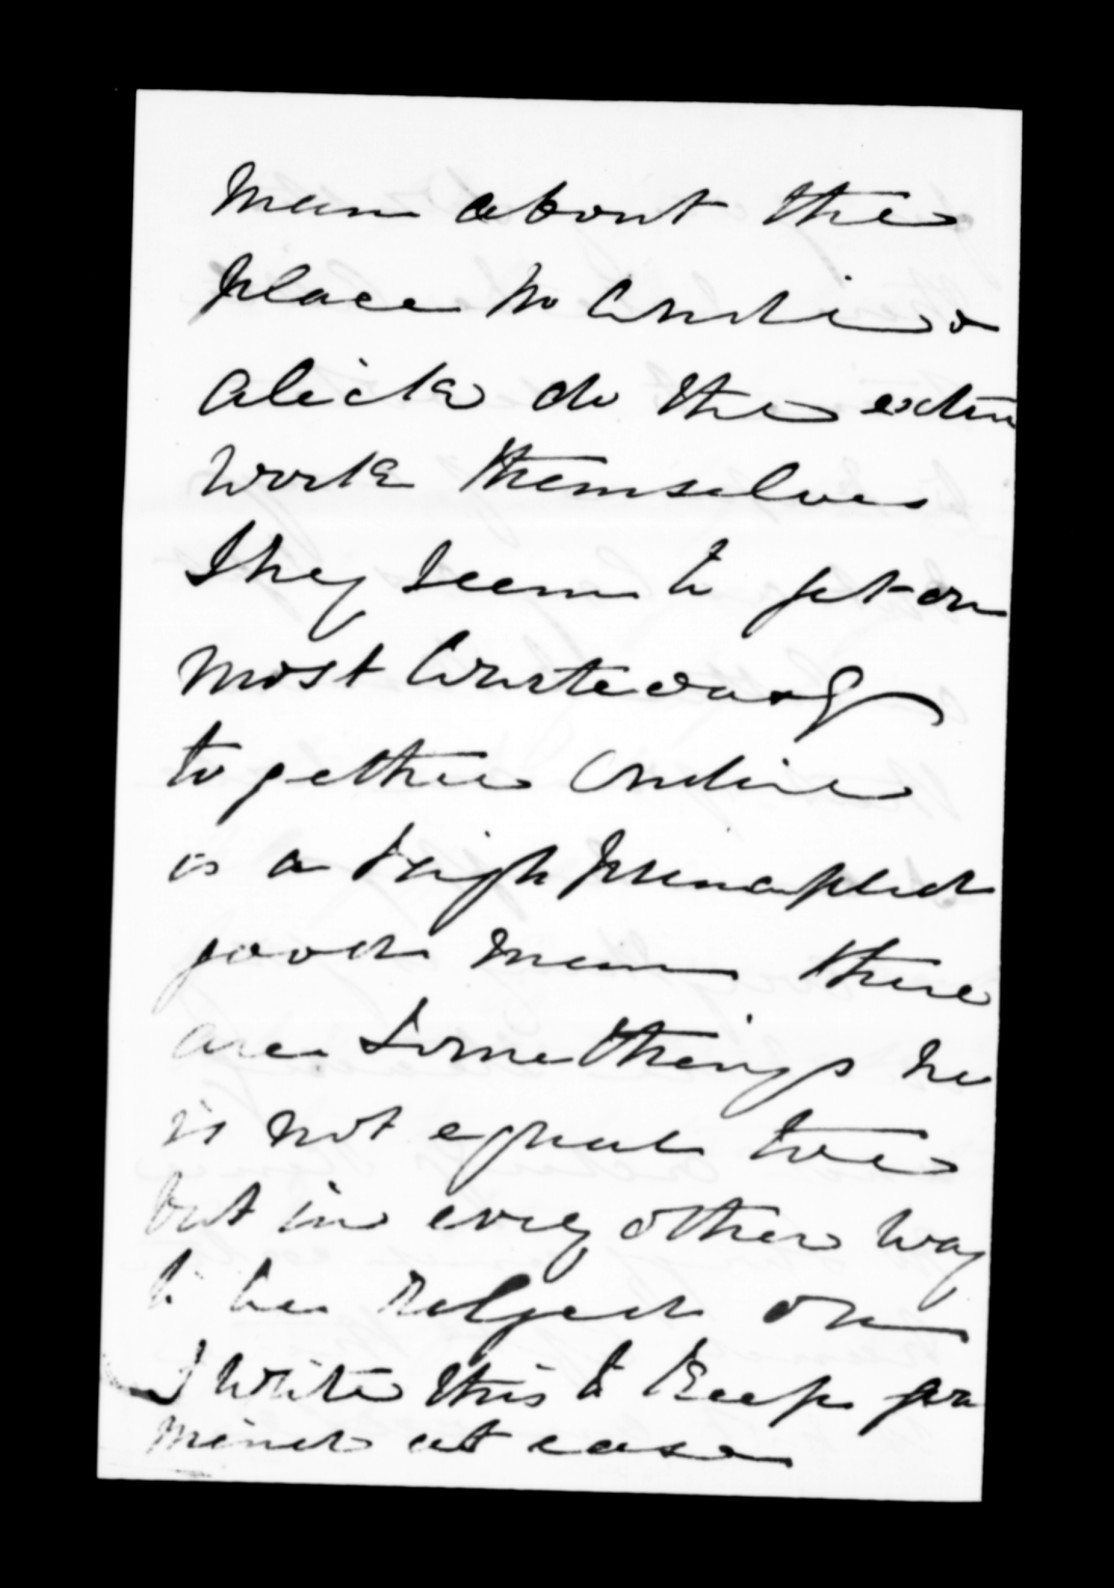 man about the
place Mr Condie &
Alick do the extra
work themselves
They seem to get on
most Courteously
together Condie
is a high principled
good man there
are some things he
is not equal too
but in every other way
to be relyed on
I write this to keep your
mind at ease